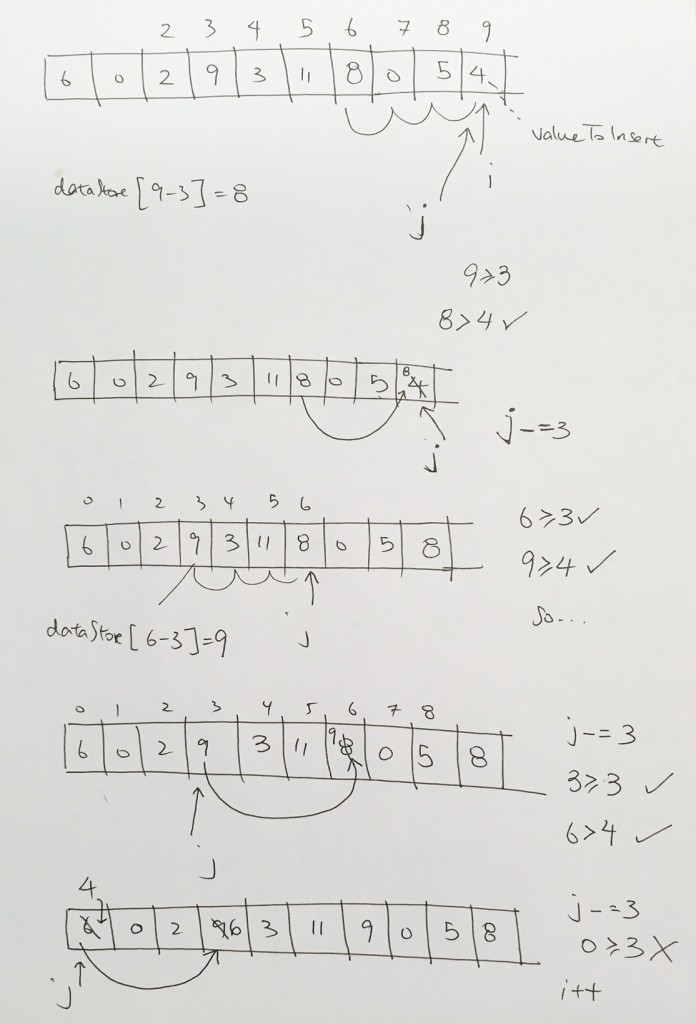 2 3 4 5 6 7 8 9
6 0 2 9 3 11 8 0 5 4
valueToInsert
i
dataStore [9-3] = 8
j
9≥3
8>4 ✓
6 0 2 9 3 11 8 0 5 8 4
j
j-=3
0 1 2 3 4 5 6
6 0 2 9 3 11 8 0 5 8
6≥3 ✓
9≥4 ✓
So...
dataStore [6-3]=9
j
0 1 2 3 4 5 6 7 8
6 0 2 9 3 11 9 8 0 5 8
j-=3
3≥3 ✓
6>4 ✓
j
4
6 0 2 9 6 3 11 9 0 5 8
j-=3
0≥3 X
j
i++